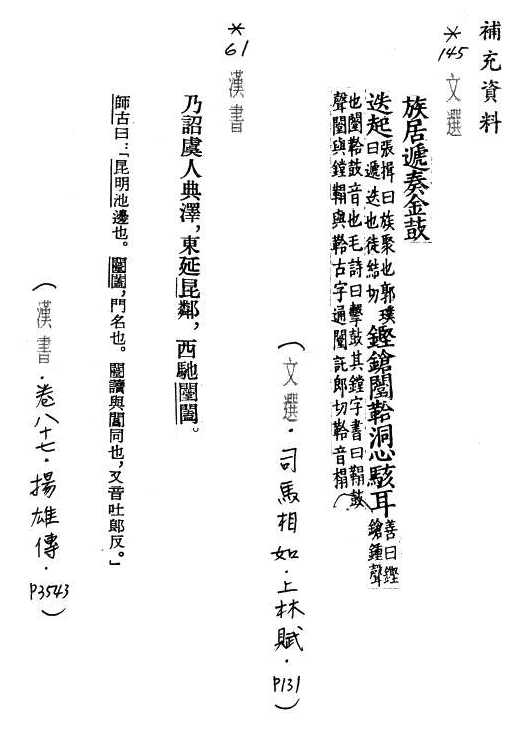 補充資料
*145 文選
族居遞奏金鼓
迭起張揖曰族聚也郭璞曰遞迭也徒結切鏗鎗闛鞈洞心駭耳善曰鏗鎗鍾聲
也闛鞈鼓音也毛詩曰擊鼓其鏜字書曰鼓
聲闛與鏜與鞈古字通闛託郎切鞈音榻
(文選．司馬相如．上林賦．P131)
*61 漢書
乃詔虞人典澤，東延昆鄰，西馳闛闔。
師古曰：「昆明池邊也。闛闔，門名也。闛讀與閶同也，又音吐郎反。」
(漢書．卷八十七．揚雄傳．P3543)